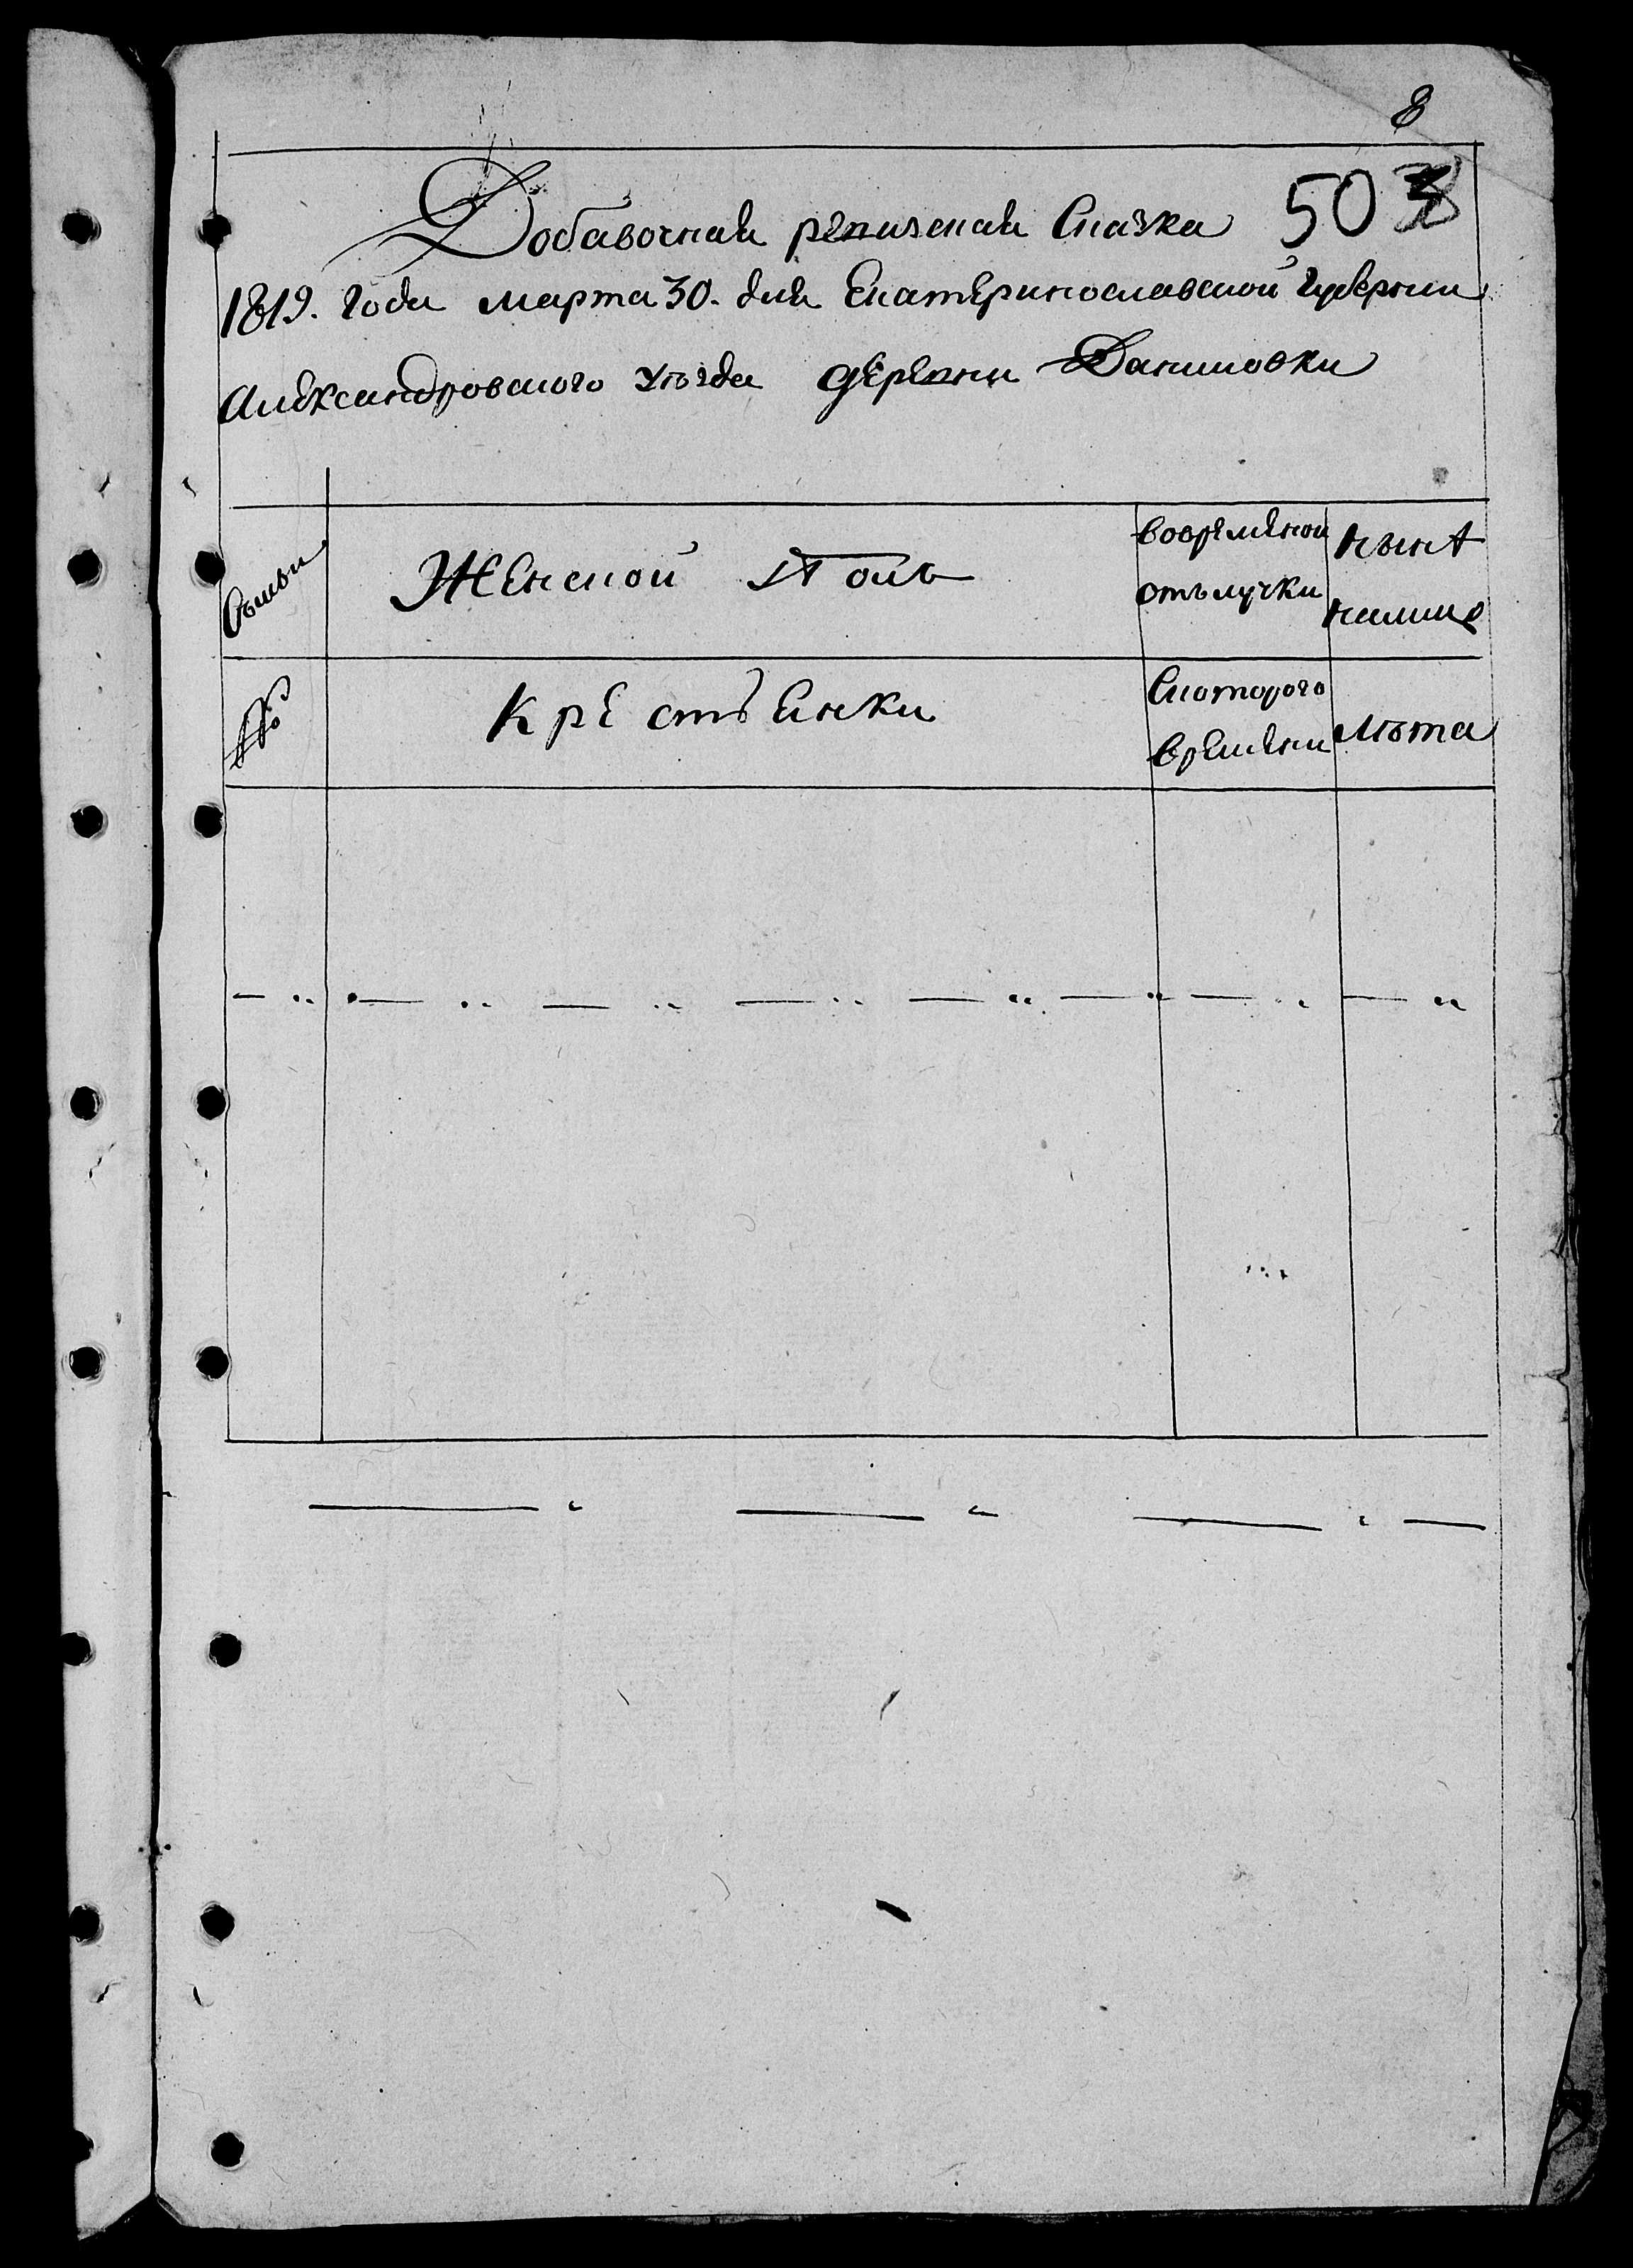 8
503
Добавочная ревизская Сказка
1819. Года марта 30. дня Екатеринославской Губернии
Александровского уезда деревни Даниловки
Семьи
Женской Полъ
вовременой
отълучки
нынѣ
налице
№
Крестъянки
Скоторого
времени
Лѣта